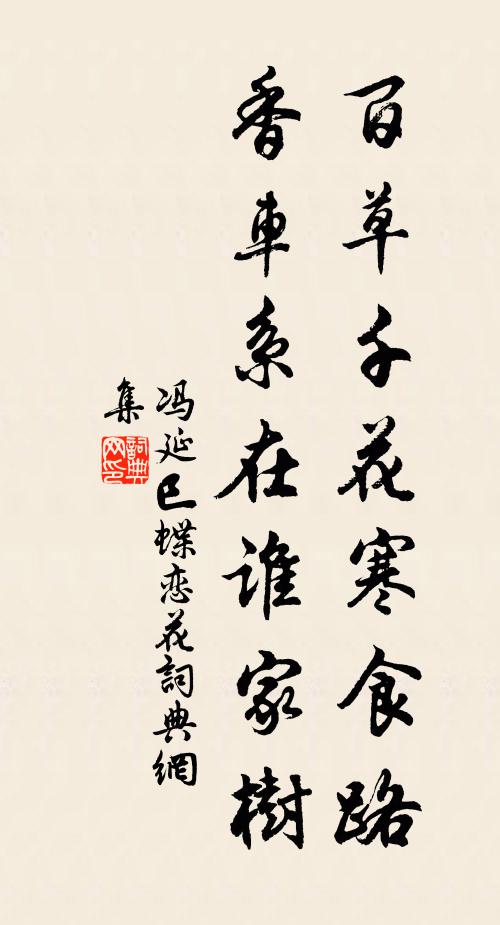 百草千花寒食路
香車系在谁家樹
冯延巳蝶恋花詞典網
集
詞典网印